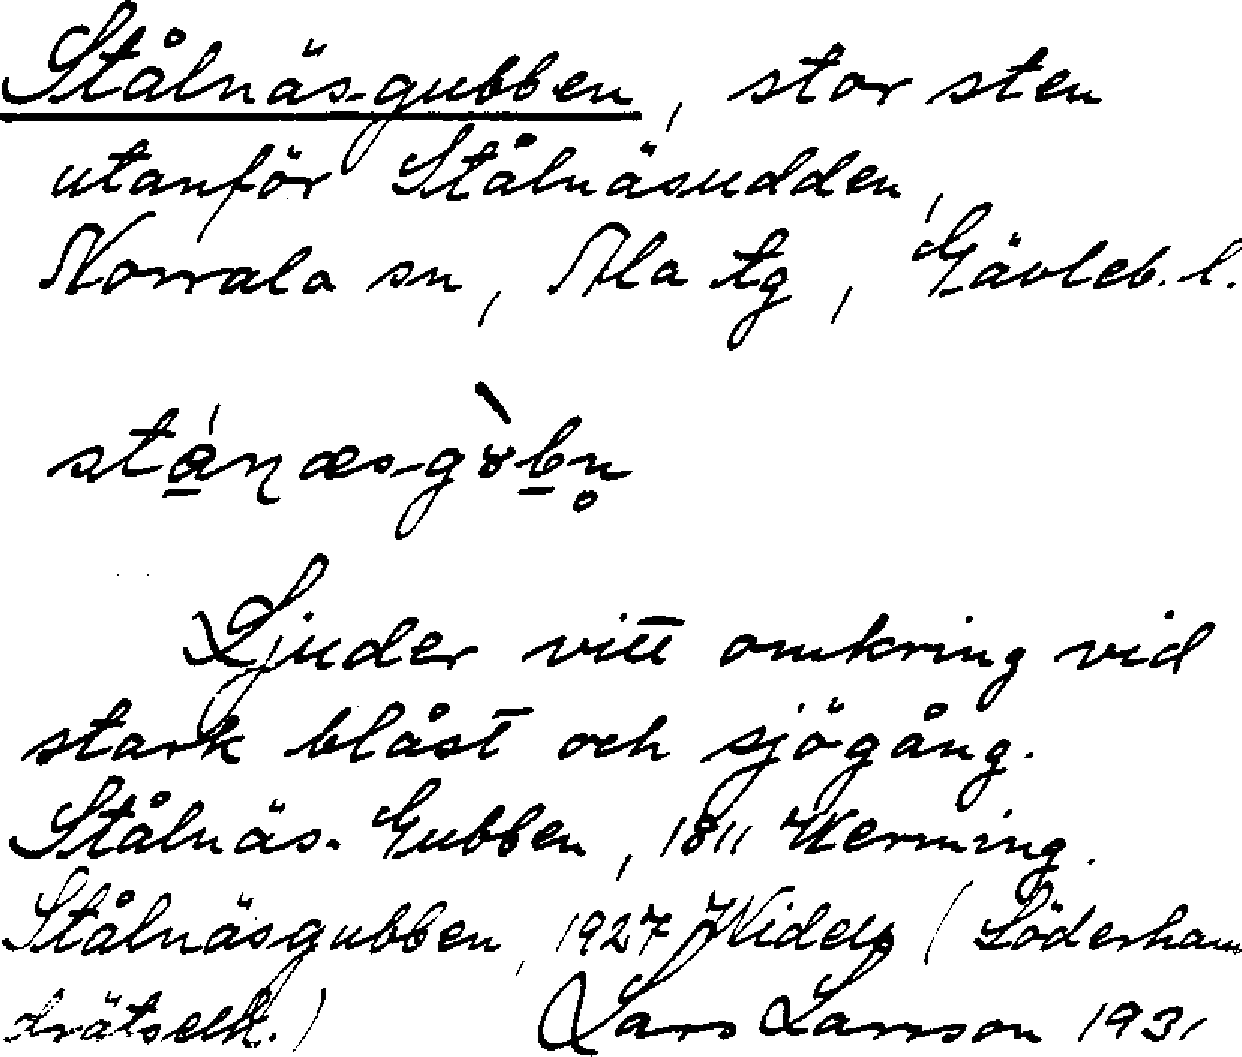 Stålnäs-gubben, stor sten
utanför Stålnäsudden,
Norrala sn, Ala tg, Gävleb. l.
Ljuder vitt omkring vid
stark blåst och sjögång.
Stålnäs-Gubben, 1811 Werming.
Stålnäsgubben, 1927 (Söderham
drätselk.) Lars Larsson 1931